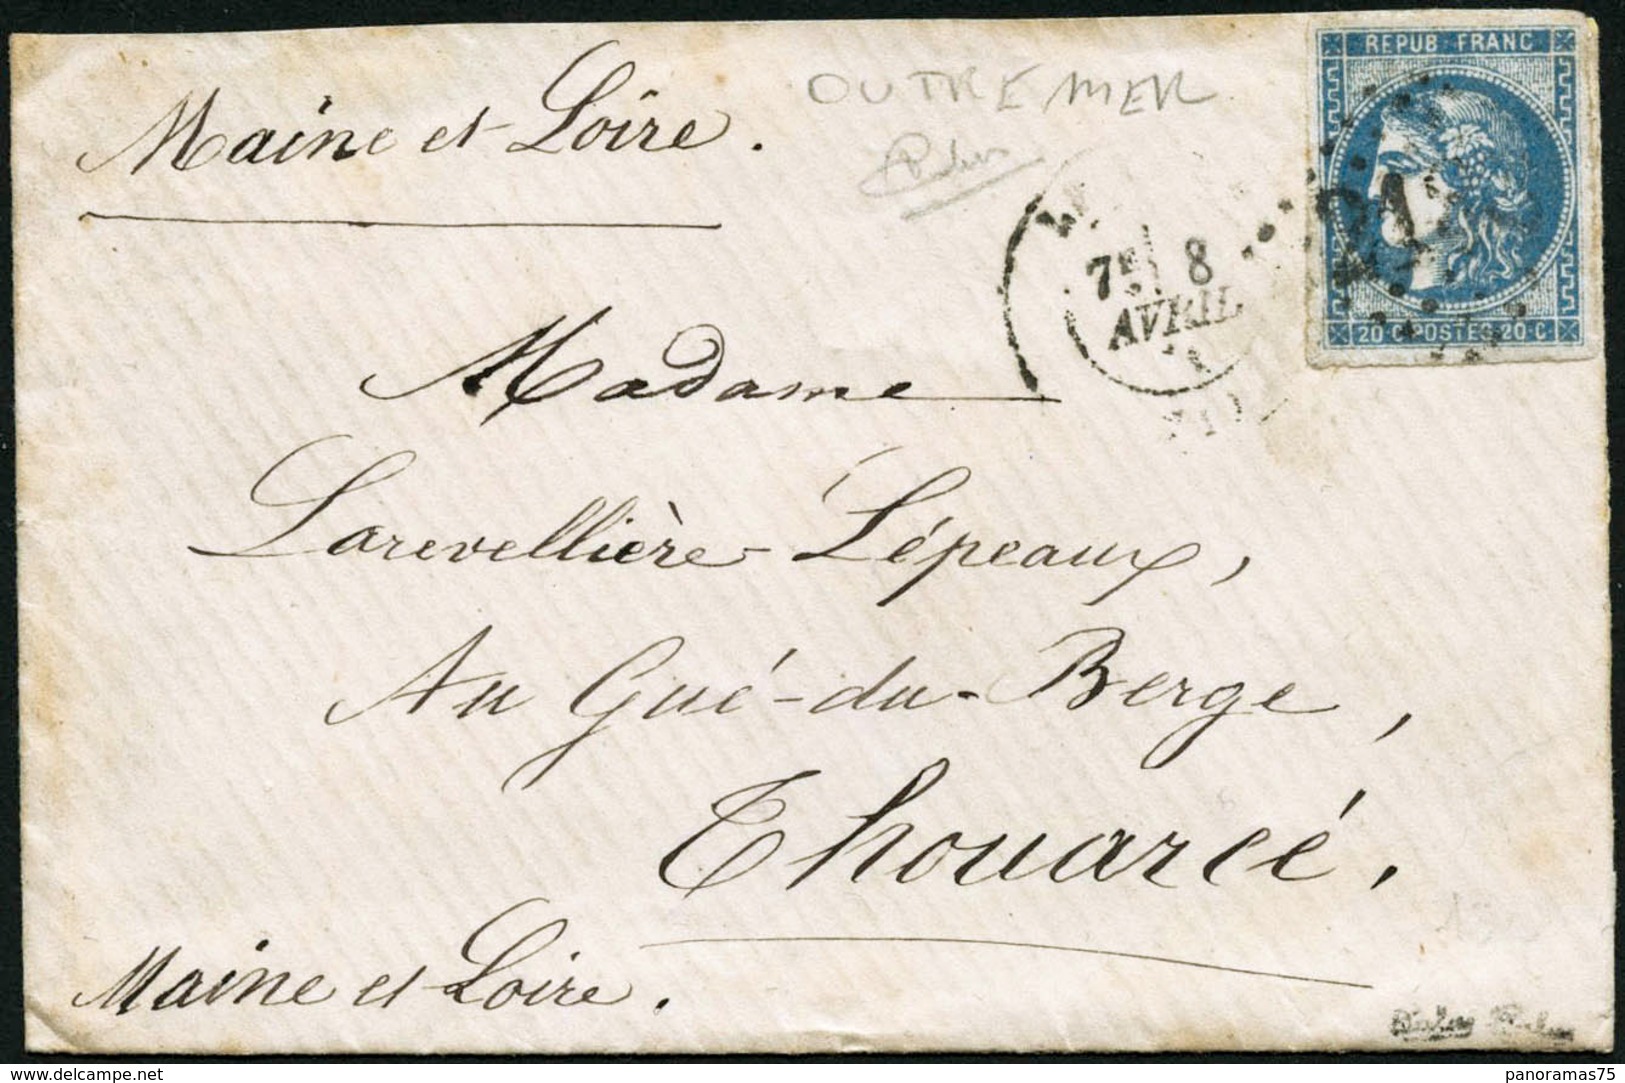 Maine et Loire.
OUTREMER
REPUB. FRANC
20 C. POSTES 20. C
7E 8
AVRIL
Madame
Larevellière-Lépeaux,
Au Gué-du-Berge,
Thouarcé.
Maine et Loire.
www.delcampe.net
panoramas75